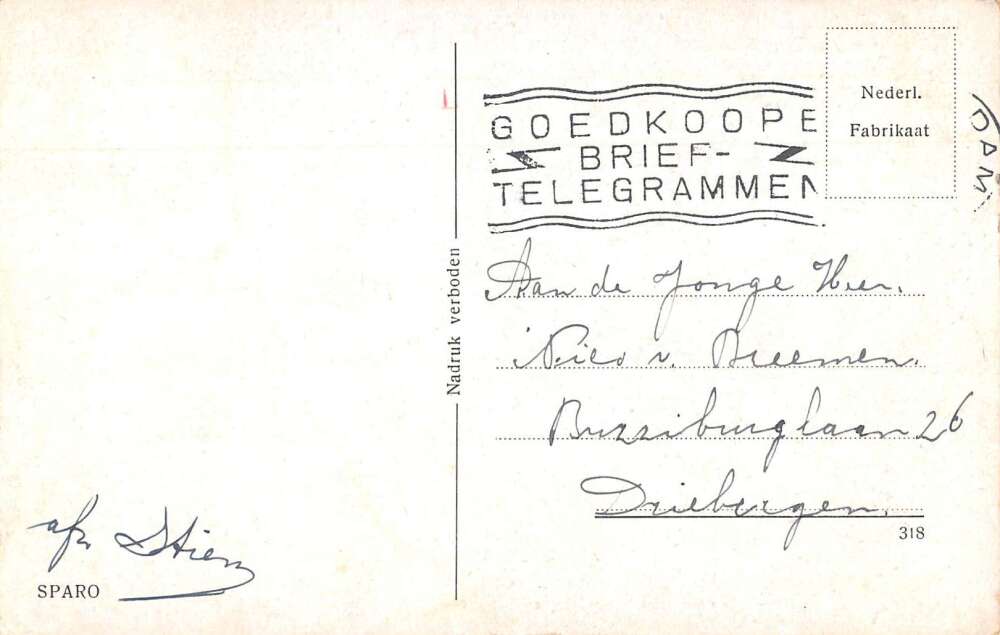 Nederl.
Fabrikaat
DAM
GOEDKOOPE
BRIEF-
TELEGRAMMEN
Nadruk verboden
Aan de Jonge Heer.
Nico v. Breemen.
26
Driebergen.
318
afz Stien
SPARO